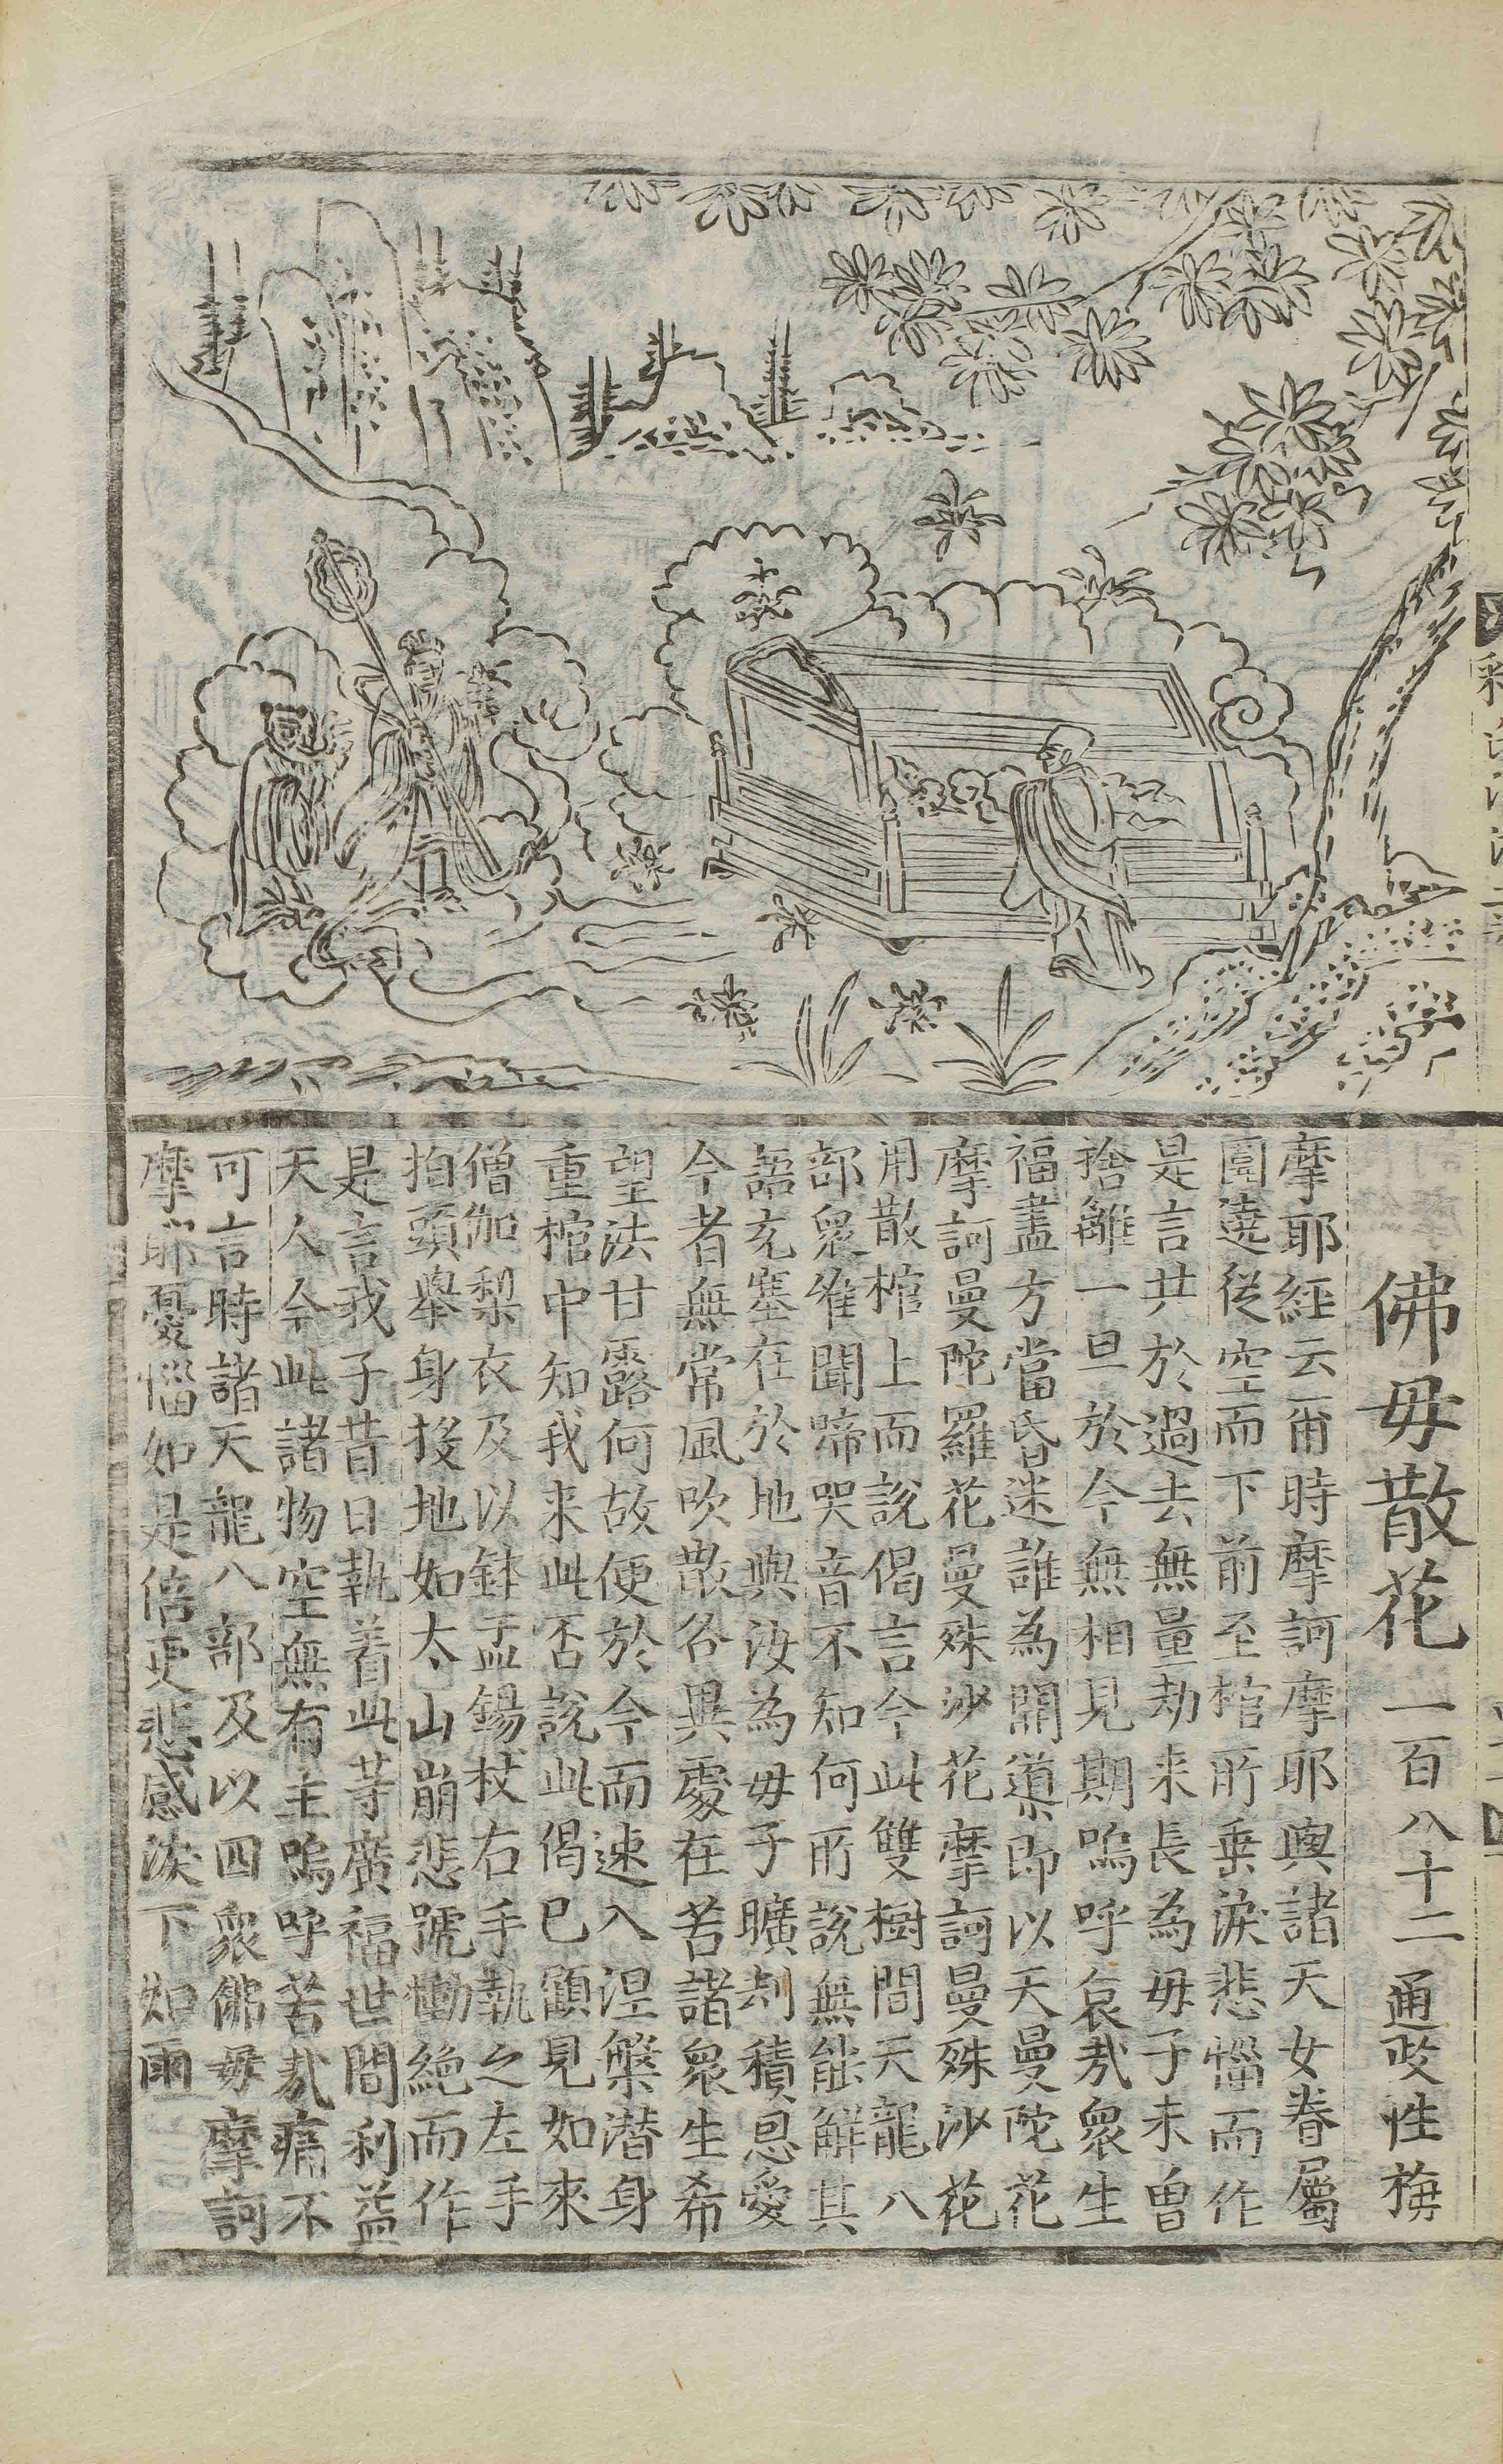 佛毋散花 一百八十二 通政性梅
摩耶經云爾時摩訶摩耶與諸天女眷屬
圍遶從空而下前至棺所垂淚悲惱而作
是言共於過去無量劫来長為毋子未曾
捨離一旦於今無相見期嗚呼哀㦲衆生
福盡方當昏迷誰為開導即以天曼陀花
摩訶曼陀羅花曼殊沙花摩訶曼殊沙花
用散棺上而說偈言今此雙樹間天龍八
部衆唯聞啼哭音不知何所說無能解其
語充塞在於地與汝為毋子曠刧積恩愛
今者無常風吹散各異處在苦諸衆生希
望法甘露何故便於今而速入涅槃潜身
重棺中知我来此否說此偈已顧見如來
僧伽梨衣及以鉢盂錫杖右手執之左手
拍頭舉身投地如太山崩悲號慟絶而作
是言我子昔日執着此等廣福世間利益
天人今此諸物空無有主嗚呼苦㦲痛不
可言時諸天龍八部及以四衆佛毋摩訶
摩耶憂惱如是倍更悲感淚下如雨